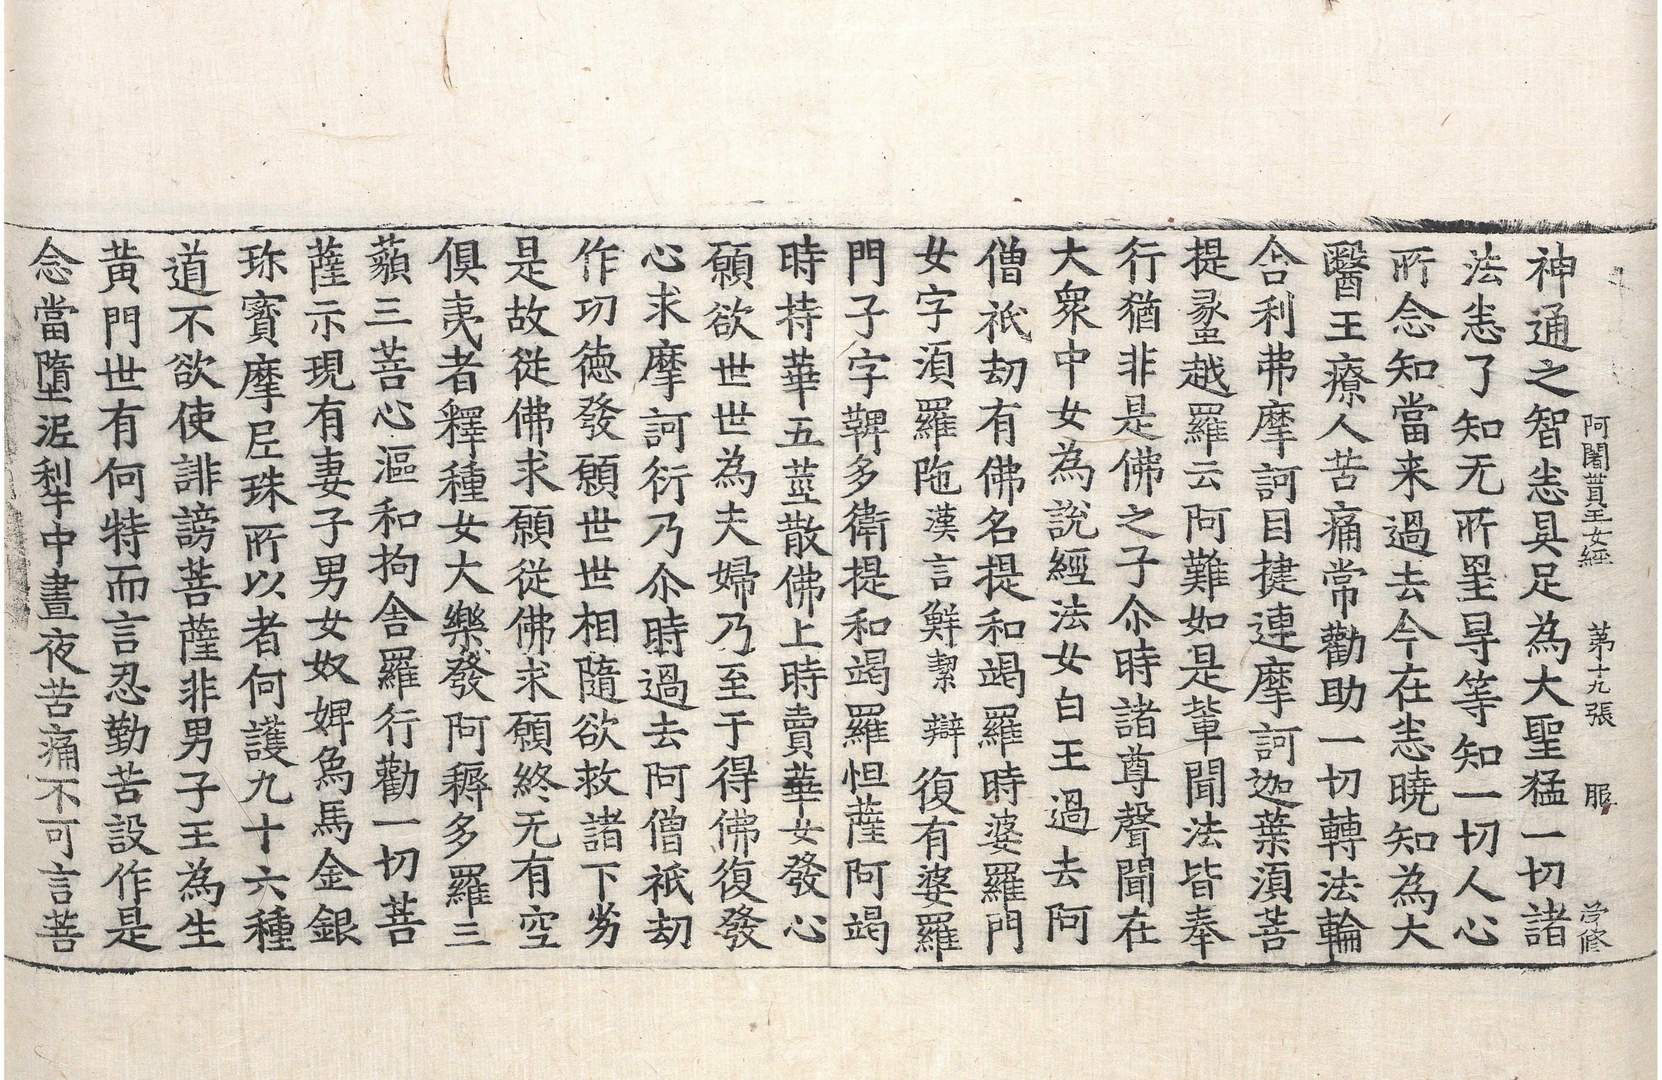 阿闍貰王女經 第十九張 服 修
神通之智悉具足為大聖猛一切諸
法悉了知无所罣㝵等知一切人心
所念知當来過去今在悉曉知為大
醫王療人苦痛常勸助一切轉法輪
舍利弗摩訶目揵連摩訶迦葉湏菩
提越羅云阿難如是軰聞法皆奉
行猶非是佛之子尒時諸尊聲聞在
大衆中女為說經法女白王過去阿
僧祇劫有佛名提和竭羅時婆羅門
女字湏羅陁漢言鮮絜辯復有婆羅
門子字鞞多衛提和竭羅怛薩阿竭
時持華五莖散佛上時賣華女發心
願欲世世為夫婦乃至于得佛復發
心求摩訶衍乃尒時過去阿僧祇劫
作功德發願世世相隨欲救諸下劣
是故從佛求願從佛求願終无有空
俱夷者釋種女大樂發阿耨多羅三
藐三菩心漚和拘舍羅行勸一切菩
薩示現有妻子男女奴婢象馬金銀
珎寶摩尼珠所以者何護九十六種
道不欲使誹謗菩薩非男子王為生
黃門世有何特而言忍勤苦設作是
念當墮泥犁中晝夜苦痛不可言菩